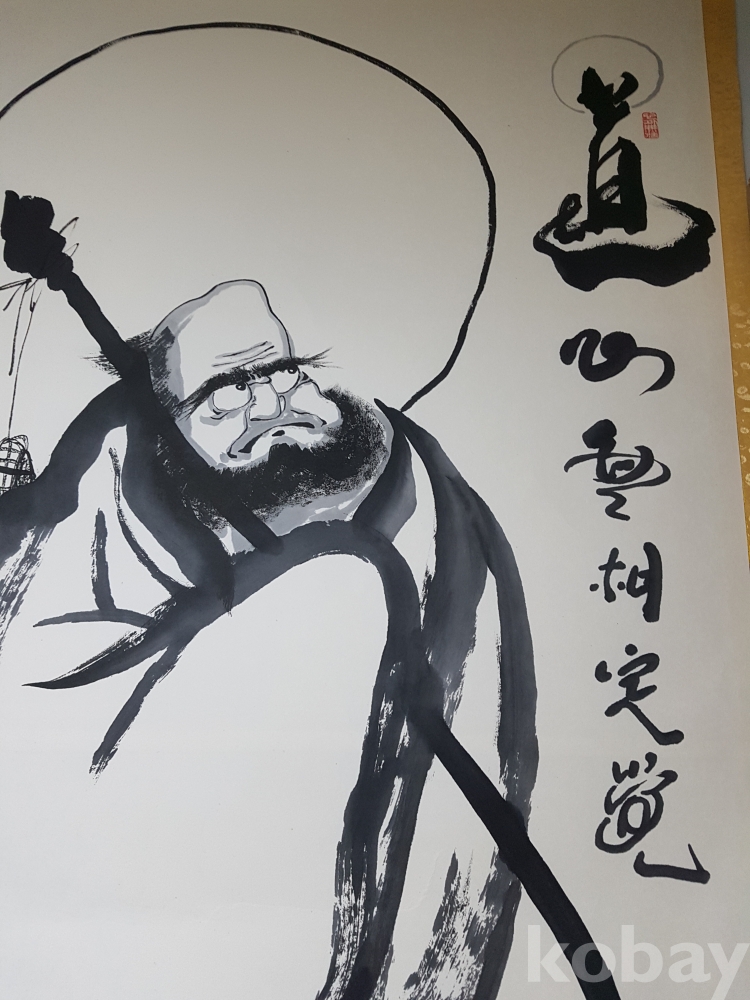 道
無相完覺
kobay